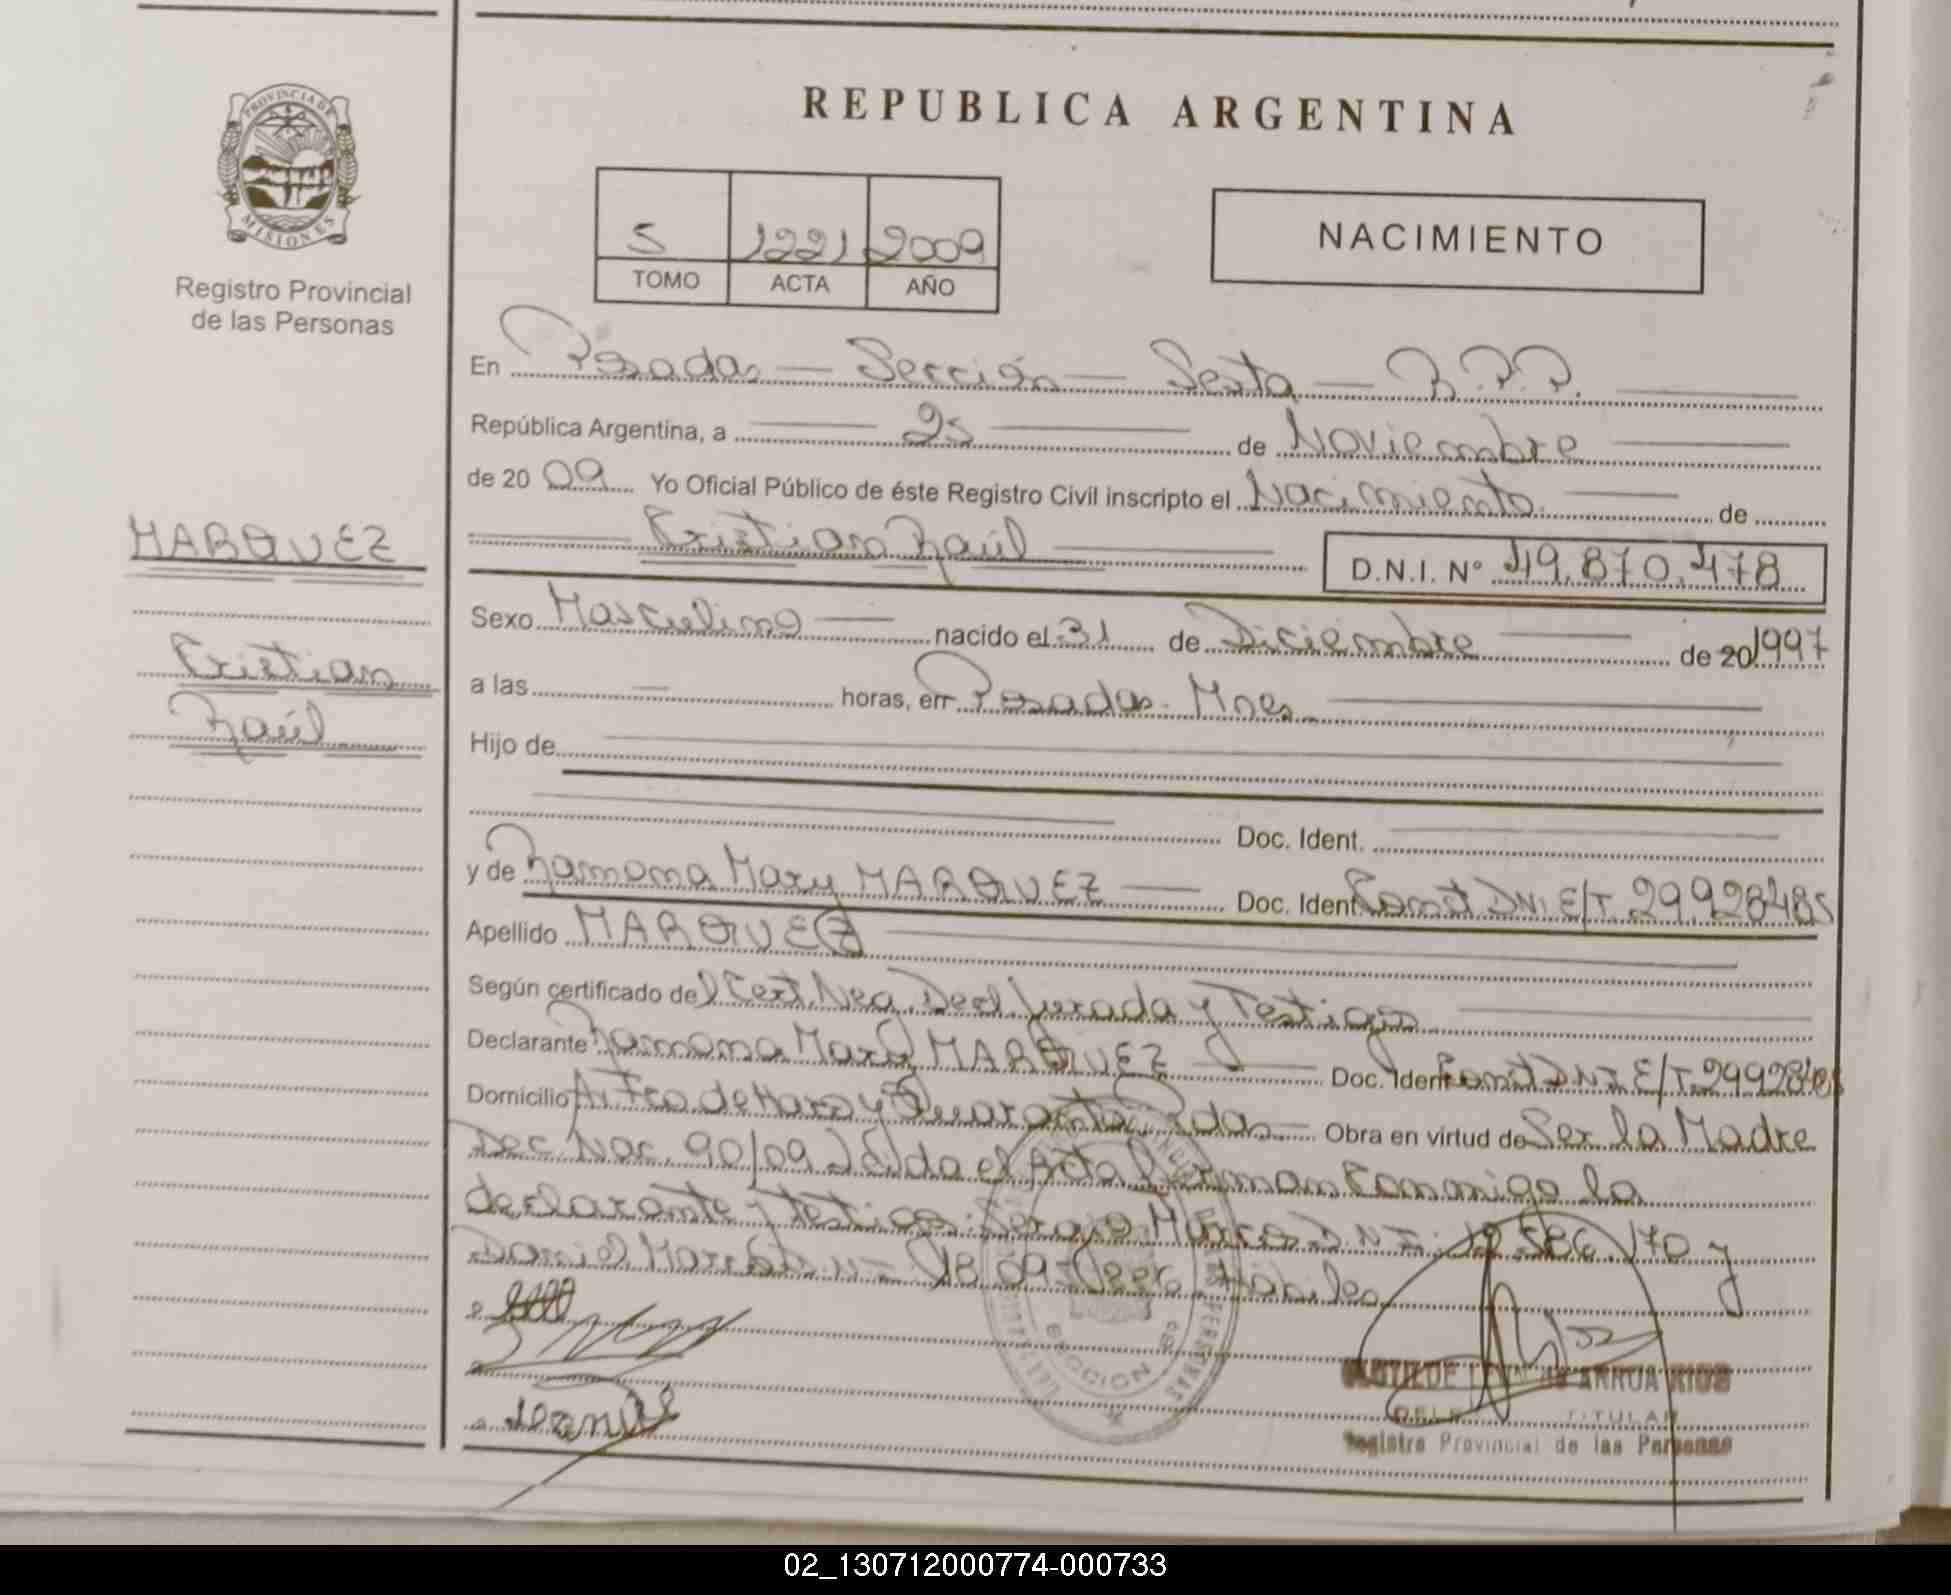 PROVINCIA DE
MISIONES
Registro Provincial
de las Personas
MARQUEZ
Cristian
Raúl
REPUBLICA ARGENTINA
5 1221 2009
TOMO ACTA AÑO
NACIMIENTO
En Posadas — Sección — Sexta — R.P.P.
República Argentina, a 25 de Noviembre
de 2009 Yo Oficial Público de éste Registro Civil inscripto el Nacimiento de
Cristian Raúl D.N.I. Nº 49.870.478
Sexo Masculino nacido el 31 de Diciembre de 20 1997
a las — horas, en Posadas - Mnes
Hijo de
Doc. Ident.
y de Ramona Mary MARQUEZ Doc. Ident. Const DNI E/T. 29.928485
Apellido MARQUEZ
Según certificado del Cert. Neg. Decl. Jurada y Testigos
Declarante Ramona Mary MARQUEZ Doc. Ident. Const DNI E/T. 29928485
Domicilio Av. Fco. de Haro y Pdas Obra en virtud de Ser la Madre
Dec. Nac. 90/09 Leída el Acta Firman Conmigo la
declarante y testigos: Sergio D.N.I. y
Daniel Hábiles
SECCION
TITULAR
Registro Provincial de las Personas
02_130712000774-000733